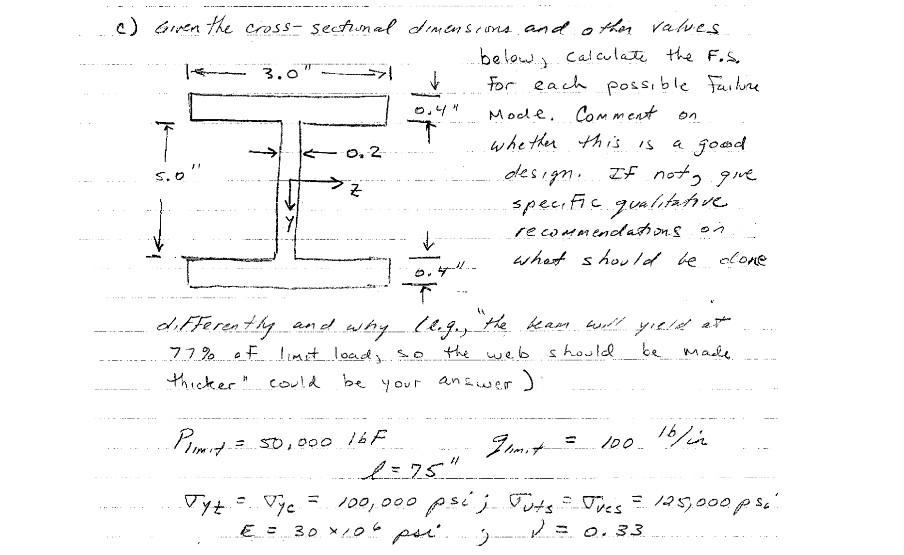 c) Given the cross-sectional dimensions and other values
below, calculate the F.S.
for each possible failure
Mode. Comment on
whether this is a good
design. If not, give
specific qualitative
recommendations on
what should be done
3.0"
0.4"
0.2
5.0"
Z
Y
0.4"
differently and why (e.g., "the beam will yield at
77% of limit load, so the web should be made
thicker" could be your answer)
Plimit = 50,000 lbF qlimit = 100 lb/in
l = 75"
σyt = σyc = 100,000 psi ; σuts = σucs = 125,000 psi
E = 30 x 10⁶ psi ; ν = 0.33